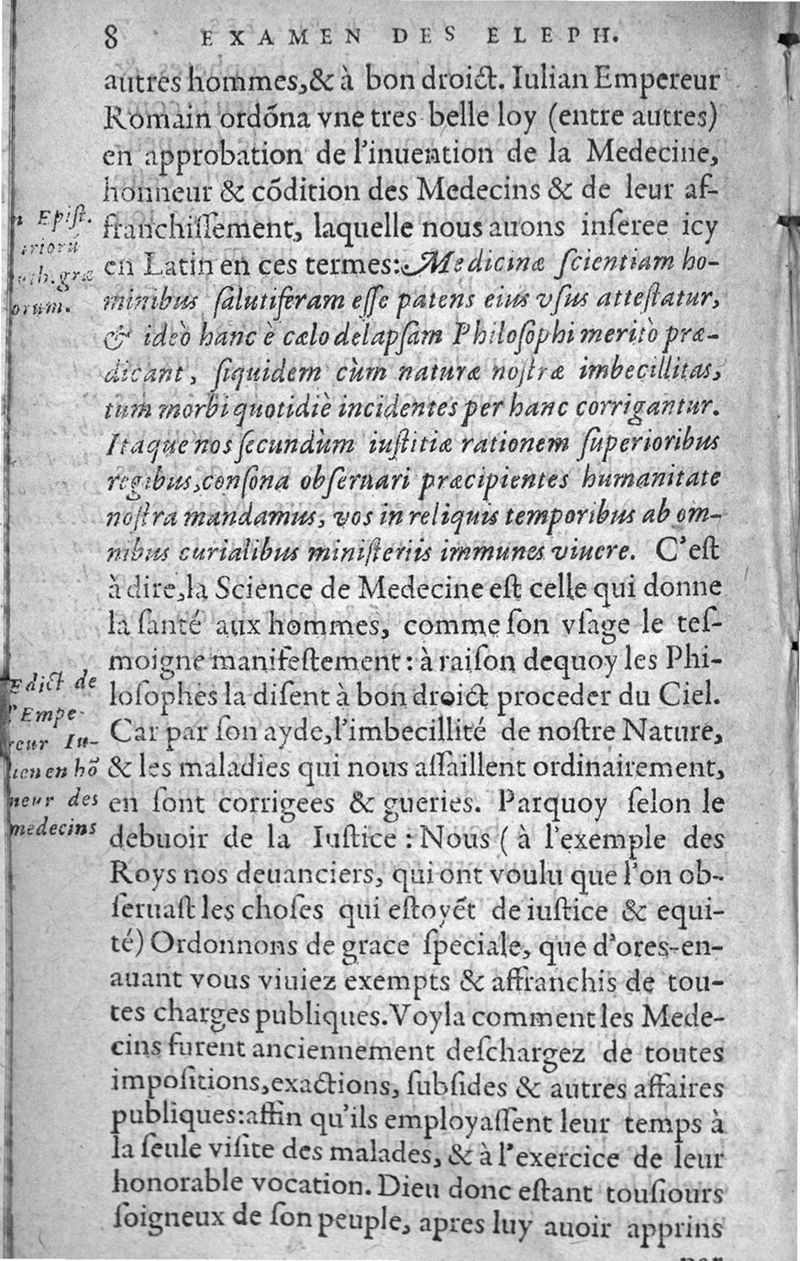 8 EXAMEN DES ELEPH.
autres hommes,& à bon droict. Iulian Empereur
Romain ordõna vne tres belle loy (entre autres)
en approbation de l'inuention de la Medecine,
honneur & cõdition des Medecins & de leur af-
franchiſſement, laquelle nous auons inſeree icy
en Latin en ces termes: Medicinæ ſcientiam ho-
minibus ſalutiferam eſſe patens eius vſus atteſtatur,
& ideò hanc è cælo delapſam Philoſophi meritò præ-
dicant, ſiquidem cùm naturæ noſtræ imbecillitas,
tum morbi quotidiè incidentes per hanc corrigantur.
Itaque nos ſecundùm iuſtitiæ rationem ſuperioribus
regibus,conſona obſeruari præcipientes humanitate
noſtra mandamus, vos in reliquis temporibus ab om-
nibus curialibus miniſteriis immunes viuere. C'eſt
à dire,la Science de Medecine eſt celle qui donne
la ſanté aux hommes, comme ſon vſage le teſ-
moigne manifeſtement : à raiſon dequoy les Phi-
loſophes la diſent à bon droict proceder du Ciel.
Car par ſon ayde,l'imbecillité de noſtre Nature,
& les maladies qui nous aſſaillent ordinairement,
en ſont corrigees & gueries. Parquoy ſelon le
debuoir de la Iuſtice : Nous ( à l'exemple des
Roys nos deuanciers, qui ont voulu que l'on ob-
ſeruaſt les choſes qui eſtoyẽt de iuſtice & equi-
té) Ordonnons de grace ſpeciale, que d'ores-en-
auant vous viuiez exempts & affranchis de tou-
tes charges publiques. Voyla comment les Mede-
cins furent anciennement deſchargez de toutes
impoſitions,exactions, ſubſides & autres affaires
publiques:affin qu'ils employaſſent leur temps à
la ſeule viſite des malades, & à l'exercice de leur
honorable vocation. Dieu donc eſtant touſiours
ſoigneux de ſon peuple, apres luy auoir apprins
Epiſt.
græ
orum.
Edict de
l'Empe-
reur Iu-
lien en hõ
neur des
medecins